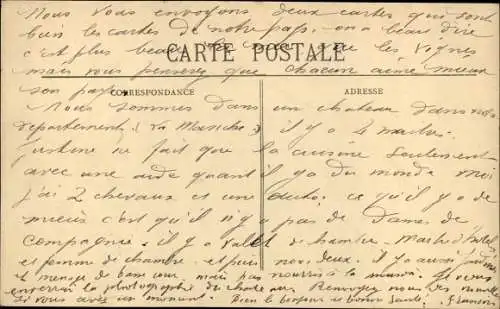 Nous vous envoyons deux cartes qui sont
bien les cartes de notre pays. on a beau dire
c'est plus beau que les Vignes
CARTE POSTALE
mais vous penserez que chacun aime mieux
son pays.
CORRESPONDANCE
ADRESSE
Nous sommes dans un chateau dans notre
departement (La Manche) il y a 4 maitres.
Justine ne fait que la cuisine seulement
avec une aide quant il y a du monde moi
j'ai 2 chevaux et une auto. ce qu'il y a de
mieux c'est qu'il n'y a pas de Dames de
Compagnie. il y a Valet de chambre. Maitre d'hotel
et femme de chambre. et puis nous deux. il y a aussi
et menage de basse cour mais pas nourris à la maison.
la photographie du chateau Renvoyez nous des nouvelles
Si vous avez un moment. Bien le bonjour et bonne Santé.